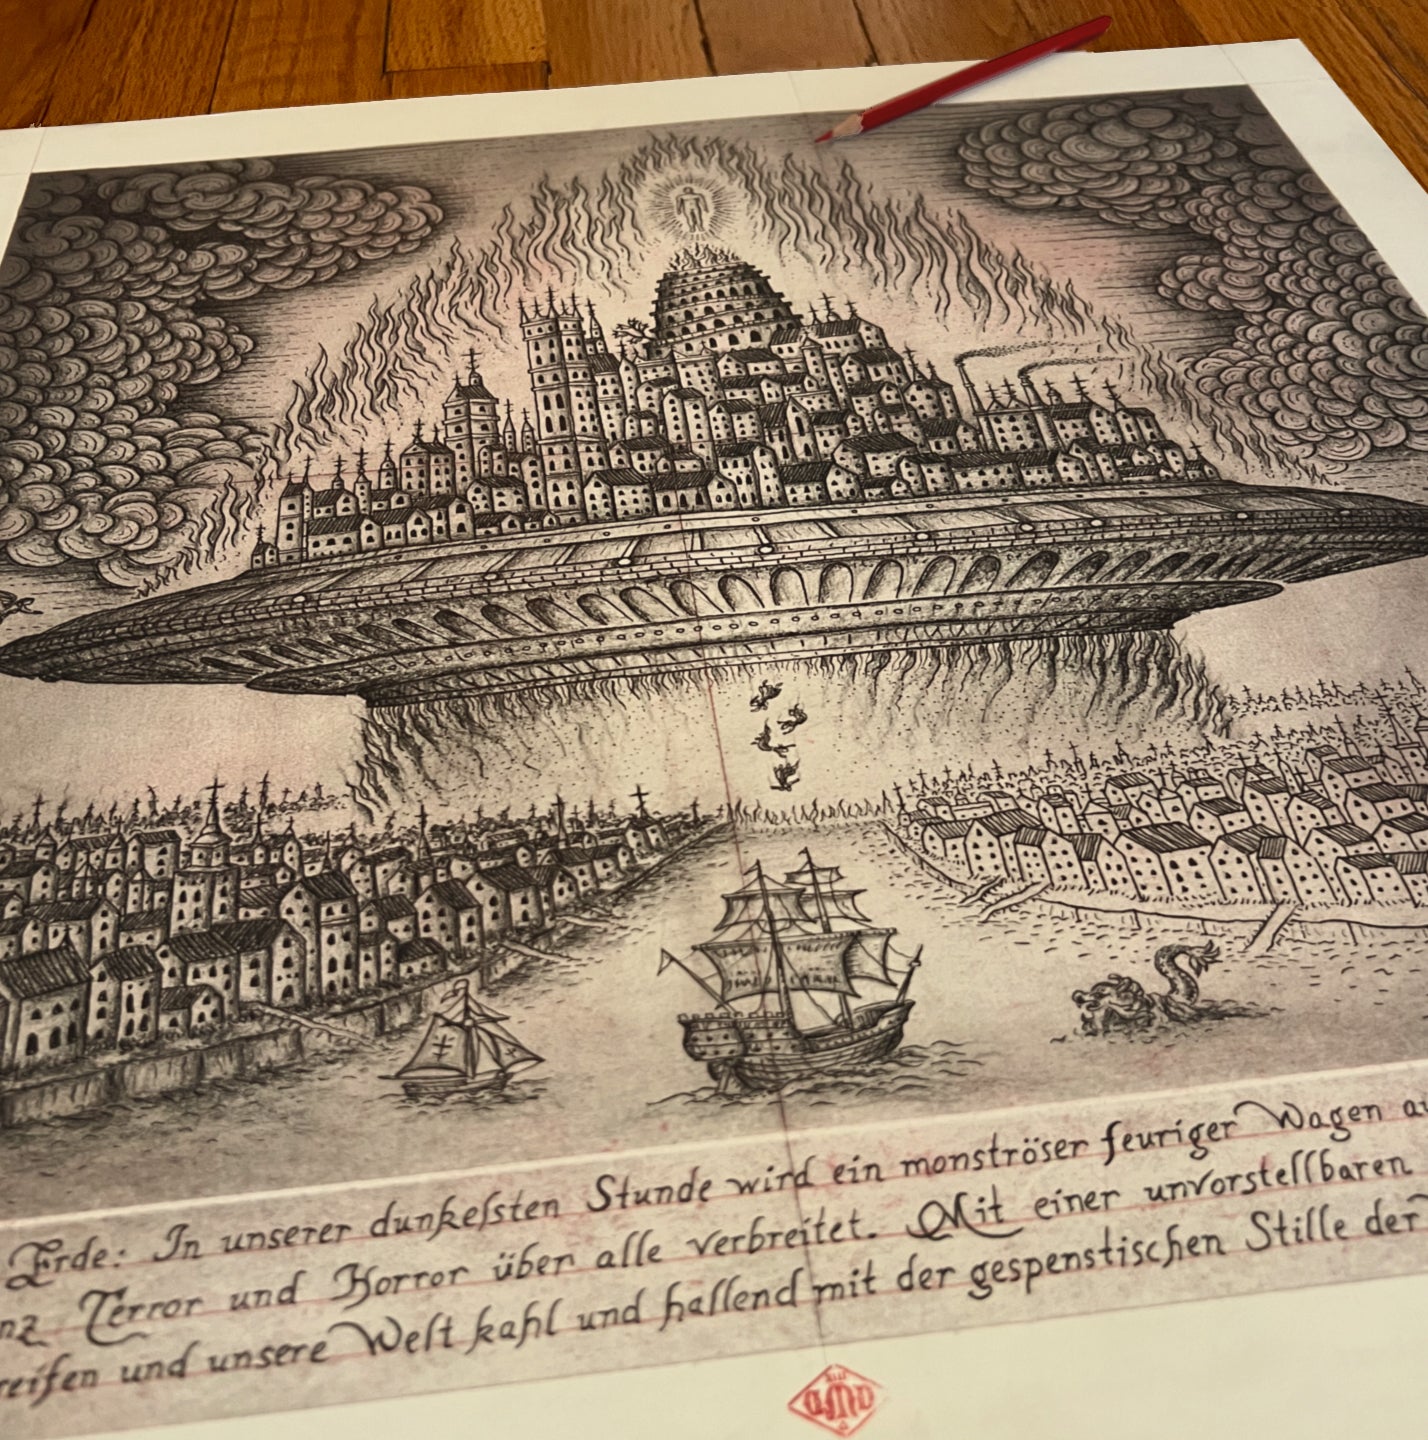 Erde: In unserer dunkelsten Stunde wird ein monströser feuriger Wagen
Terror und Horror über alle verbreitet. Mit einer unvorstellbaren
und unsere Welt kahl und hallend mit der gespenstischen Stille der